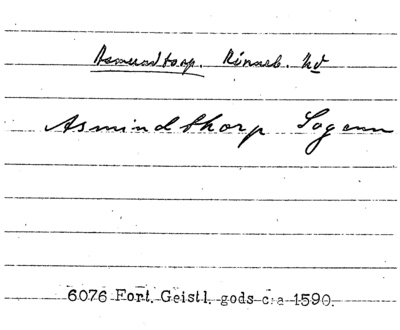 Asmundtorp. Rönneb. hd
Asmindthorp Sogenn
6076 Fort. Geistl. gods c:a 1590.